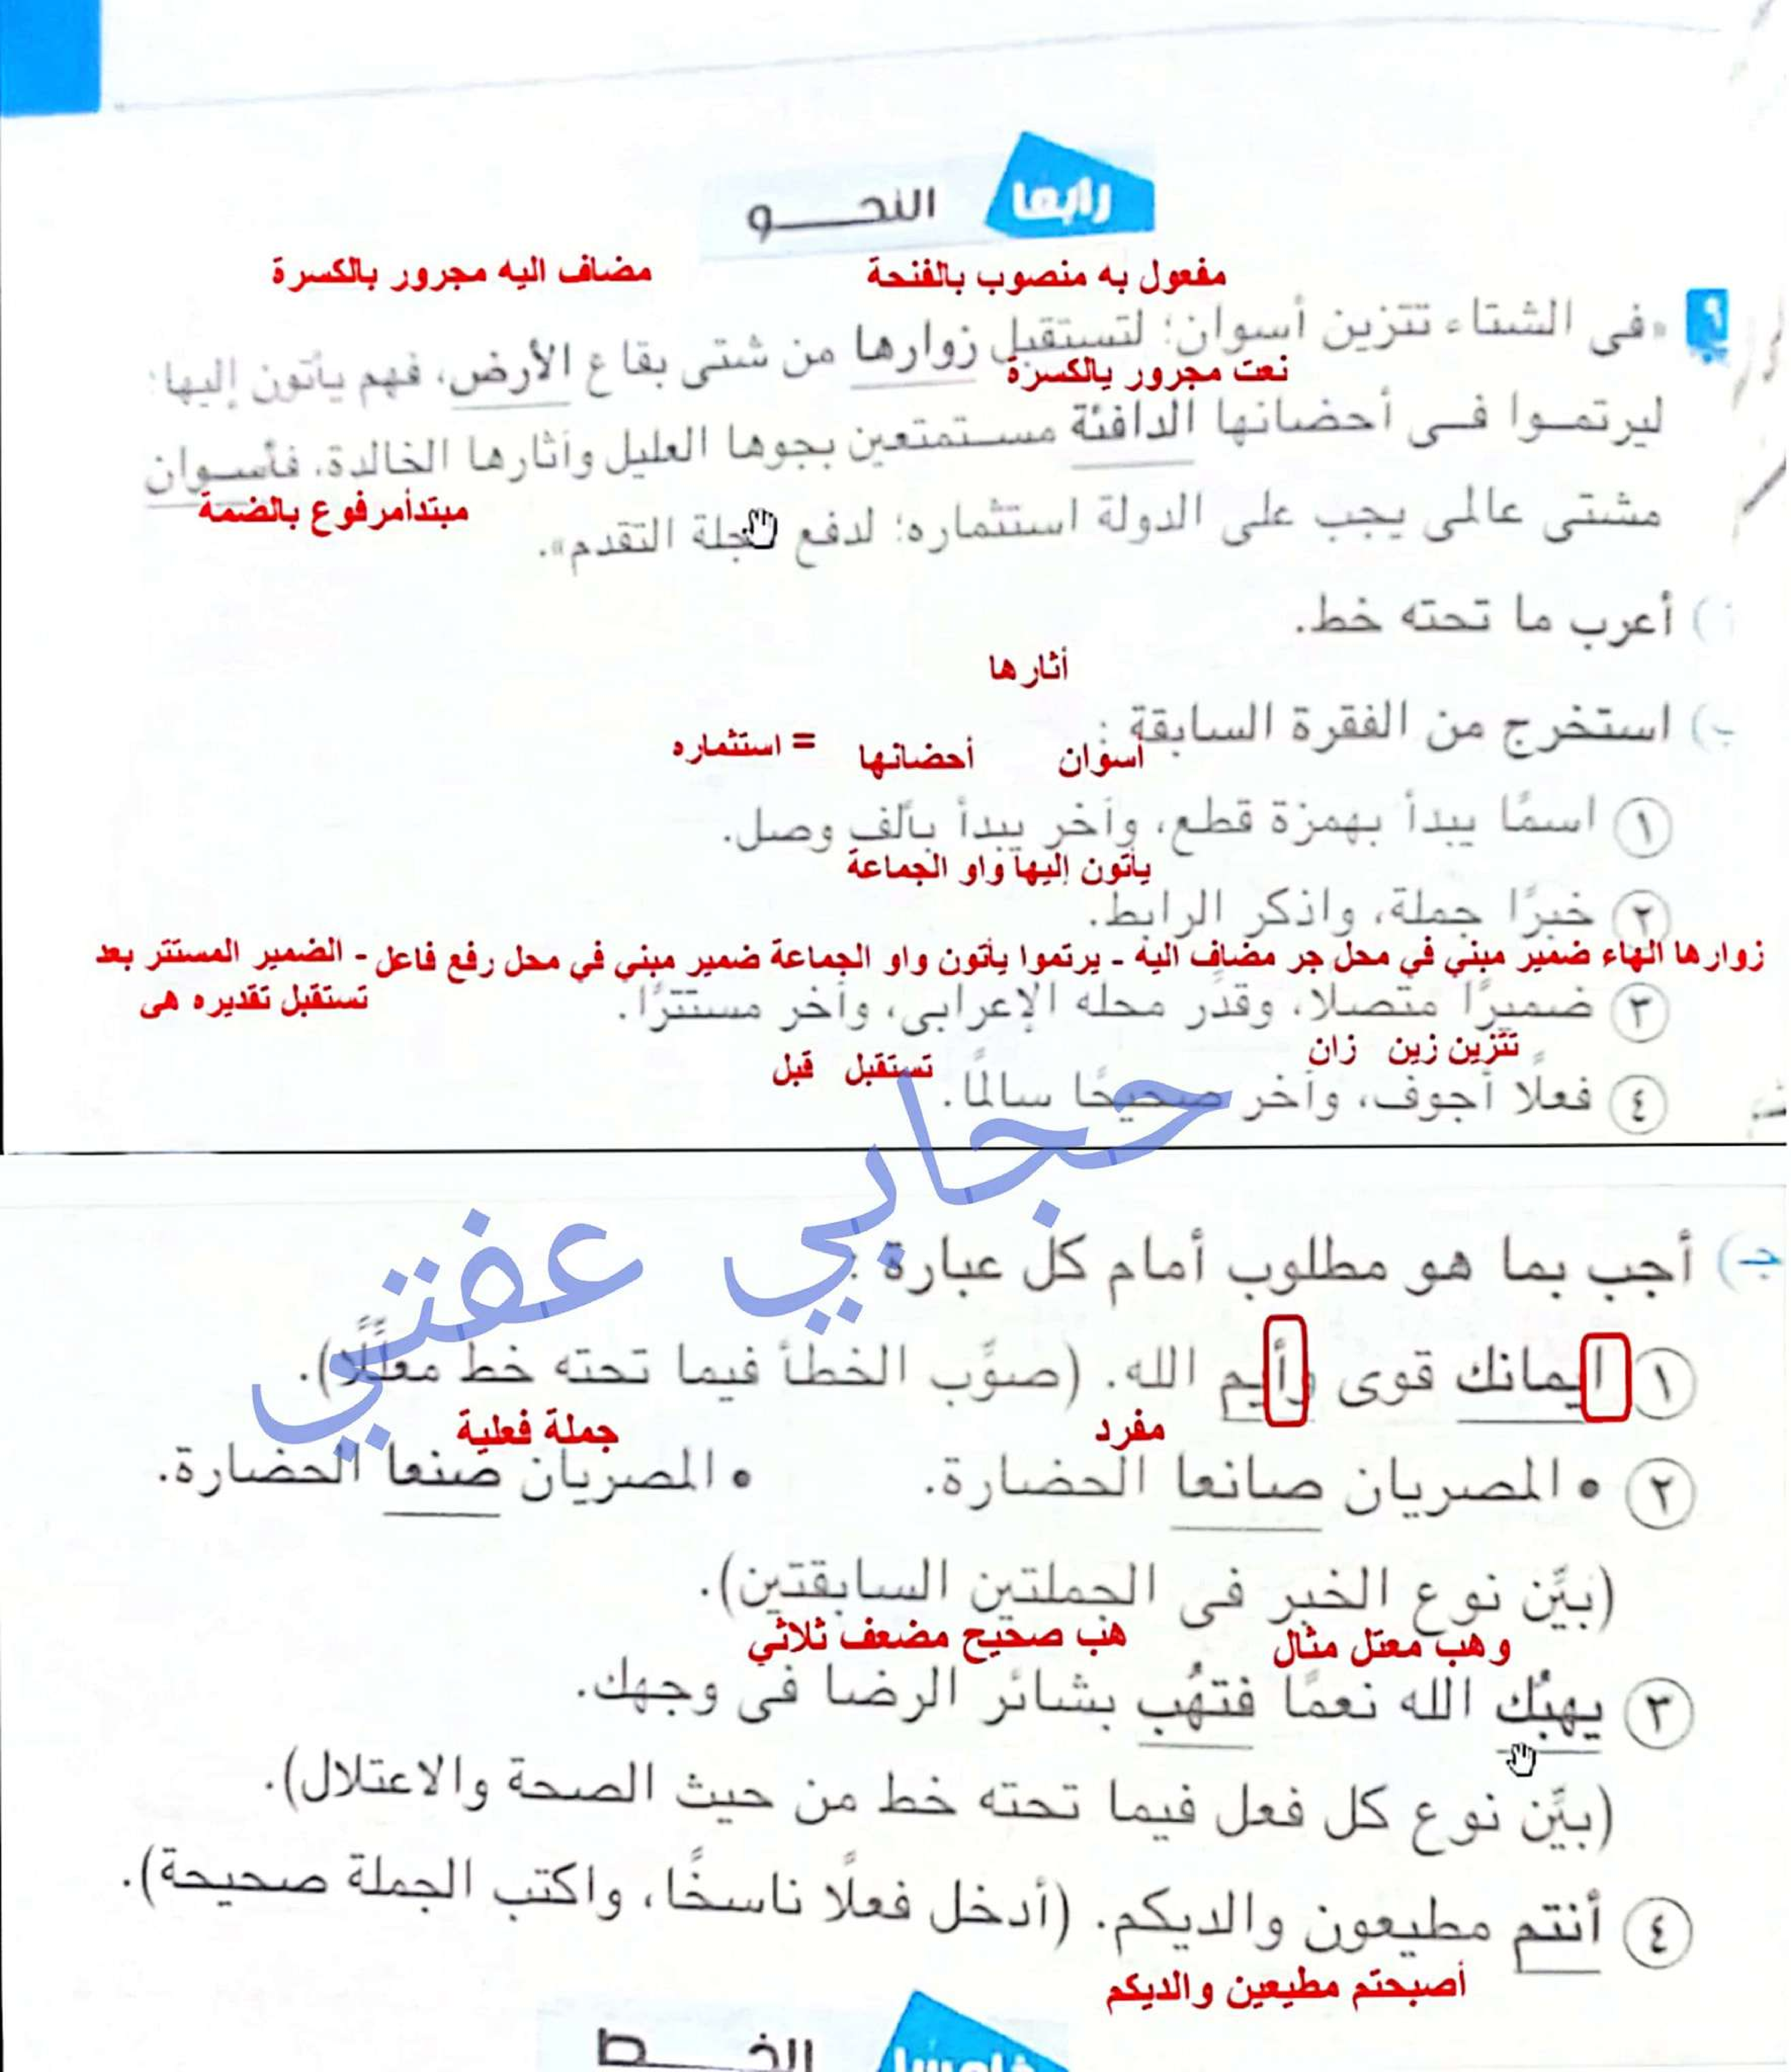 رابعا النحــــو
مضاف اليه مجرور بالكسرة
مفعول به منصوب بالفتحة
«فى الشتاء تتزين أسوان؛ لتستقبل زوارها من شتى بقاع الأرض، فهم يأتون إليها؛
نعت مجرور بالكسرة
ليرتمــوا فــى أحضانها الدافئة مســتمتعين بجوها العليل وآثارها الخالدة، فأســوان
مبتدأمرفوع بالضمة
مشتى عالمى يجب على الدولة استثماره؛ لدفع عجلة التقدم».
) أعرب ما تحته خط.
أثارها
ب) استخرج من الفقرة السابقة :
أسوان أحضانها = استثماره
١ اسمًا يبدأ بهمزة قطع، وآخر يبدأ بألف وصل.
يأتون إليها واو الجماعة
٢ خبرًا جملة، واذكر الرابط.
زوارها الهاء ضمير مبني في محل جر مضاف اليه - يرتموا يأتون واو الجماعة ضمير مبني في محل رفع فاعل - الضمير المستتر بعد
تستقبل تقديره هى
٣ ضميرًا متصلًا، وقدِّر محله الإعرابى، وآخر مستترًا.
تتزين زين زان
تستقبل قبل
٤ فعلًا أجوف، وآخر صحيحًا سالمًا.
حجابي عفتي
جـ) أجب بما هو مطلوب أمام كل عبارة :
١ ايمانك قوى وأيم الله. (صوِّب الخطأ فيما تحته خط معلِّلًا).
مفرد
جملة فعلية
٢ • المصريان صانعا الحضارة. • المصريان صنعا الحضارة.
(بيِّن نوع الخبر فى الجملتين السابقتين).
وهب معتل مثال هب صحيح مضعف ثلاثي
٣ يهبُك الله نعمًا فتهُب بشائر الرضا فى وجهك.
(بيِّن نوع كل فعل فيما تحته خط من حيث الصحة والاعتلال).
٤ أنتم مطيعون والديكم. (أدخل فعلًا ناسخًا، واكتب الجملة صحيحة).
أصبحتم مطيعين والديكم
خامسا الخــــط